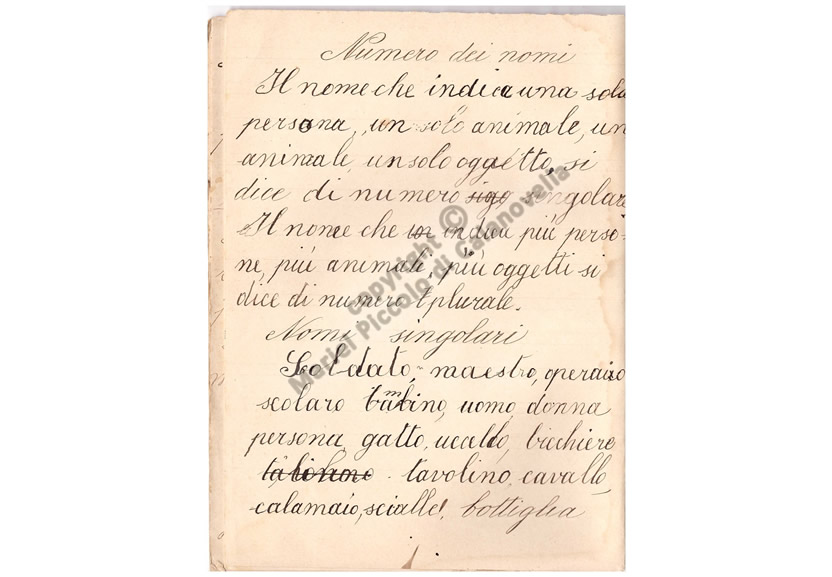 Numero dei nomi
Il nome che indica una sola
persona, un solo animale, un
animale, un solo oggetto, si
dice di numero sigo singolare
Il nome che in indica più perso-
ne, più animali, più oggetti si
dice di numero plurale.
Nomi singolari
Soldato, maestro, operaio
scolaro bambino, uomo, donna
persona, gatto, uccello, bicchiere
tavolino, cavallo,
calamaio, scialle, bottiglia
copyright ©
Mariel Piccolo di Calanovella